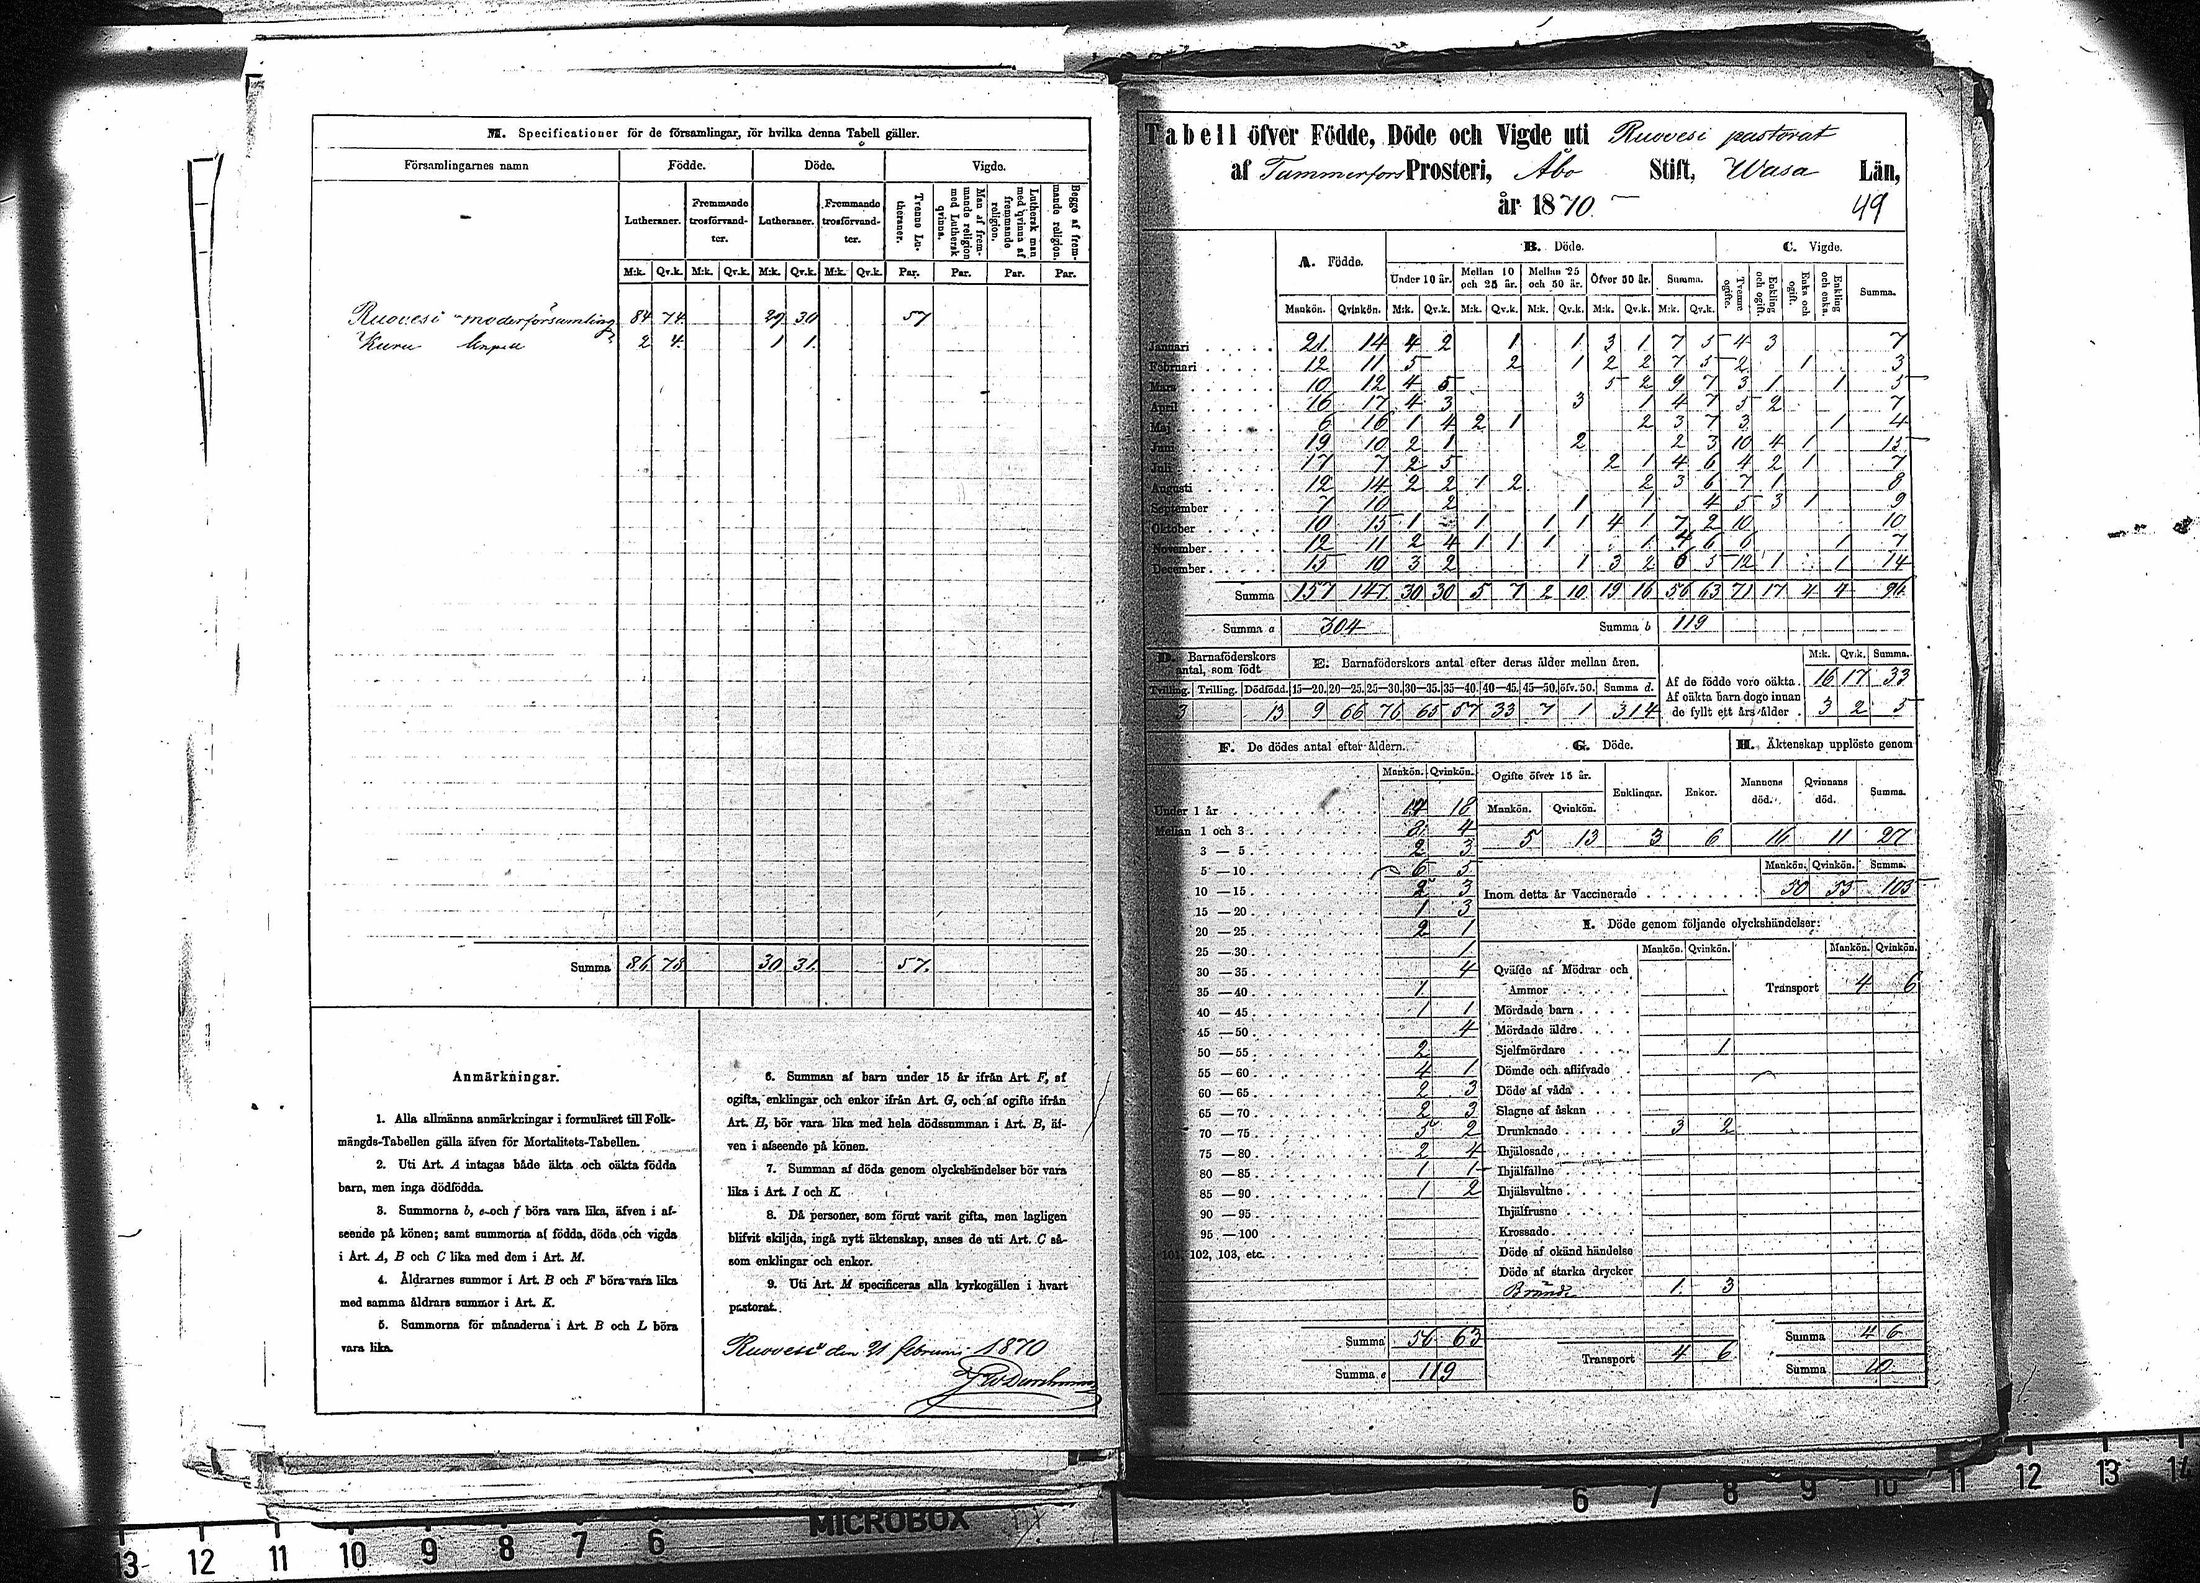 M. Specificationer för de församlingar, för hvilka denna Tabell gäller.
Församlingarnes namn Födde. Döde. Vigde.
Lutheraner. Fremmande trosförvandter. Lutheraner. Fremmande trosförvandter. Tvenne Lutheraner. Man af fremmande religion med Luthersk qvinna. Luthersk man med qvinna af fremmande religion. Begge af fremmande religion.
M:k. Qv.k. M:k. Qv.k. M:k. Qv.k. M:k. Qv.k. Par. Par. Par. Par.
Ruovesi moderförsamling 84 74. 29 30 57
Kuru 2 4. 1 1.
Summa 86 78 30 31. 57.
Anmärkningar.
1. Alla allmänna anmärkningar i formuläret till Folk-
mängds-Tabellen gälla äfven för Mortalitets-Tabellen.
2. Uti Art. A intagas både äkta och oäkta födda
barn, men inga dödfödda.
3. Summorna b, e och f böra vara lika, äfven i af-
seende på könen; samt summorna af födda, döda och vigda
i Art. A, B och C lika med dem i Art. M.
4. Åldrarnes summor i Art. B och F böra vara lika
med samma åldrars summor i Art. K.
5. Summorna för månaderna i Art. B och L böra
vara lika.
6. Summan af barn under 15 år ifrån Art. F, af
ogifta, enklingar och enkor ifrån Art. G, och af ogifte ifrån
Art. H, bör vara lika med hela dödssumman i Art. B, äf-
ven i afseende på könen.
7. Summan af döda genom olyckshändelser bör vara
lika i Art. I och K.
8. Då personer, som förut varit gifta, men lagligen
blifvit skiljda, ingå nytt äktenskap, anses de uti Art. C så-
som enklingar och enkor.
9. Uti Art. M specificeras alla kyrkogällen i hvart
pastorat.
Ruovesi den 21 februari 1870
Tabell öfver Födde, Döde och Vigde uti Ruovesi pastorat
af Tammerfors Prosteri, Åbo Stift, Wasa Län,
år 1870. 49
A. Födde. B. Döde. C. Vigde.
Under 10 år. Mellan 10 och 25 år. Mellan 25 och 50 år. Öfver 50 år. Summa. Tvenne ogifte. Enkling och ogift. Enka och ogift. Enkling och enka. Summa.
Mankön. Qvinkön. M:k. Qv.k. M:k. Qv.k. M:k. Qv.k. M:k. Qv.k. M:k. Qv.k.
Januari 21 14 4 2 1 1 3 1 7 5 4 3 7
Februari 12 11 5 2 1 2 2 7 5 2 1 3
Mars 10 12 4 5 5 2 9 7 3 1 1 5
April 16 17 4 3 3 1 4 7 5 2 7
Maj 6 16 1 4 2 1 2 3 7 3 1 4
Juni 19 10 2 1 2 2 3 10 4 1 15
Juli 17 7 2 5 2 1 4 6 4 2 1 7
Augusti 12 14 2 2 1 2 2 3 6 7 1 8
September 7 10 2 1 1 4 5 3 1 9
Oktober 10 15 1 1 1 1 4 1 7 2 10 10
November 12 11 2 4 1 1 1 1 4 6 6 1 7
December 15 10 3 2 1 3 2 6 5 12 1 1 14
Summa 157 147 30 30 5 7 2 10 19 16 56 63 71 17 4 4 96
Summa a 304 Summa b 119
D. Barnaföderskors antal, som födt
Tvilling. Trilling. Dödfödd.
3 13
E. Barnaföderskors antal efter deras ålder mellan åren.
15—20. 20—25. 25—30. 30—35. 35—40. 40—45. 45—50. öfv. 50. Summa d.
9 66 76 65 57 33 7 1 314
M:k. Qv.k. Summa.
Af de födde voro oäkta. 16 17 33
Af oäkta barn dogo innan
de fyllt ett års ålder. 3 2 5
F. De dödes antal efter åldern.
Mankön. Qvinkön.
Under 1 år 18
Mellan 1 och 3 4
3 — 5 2 3
5 — 10 6 5
10 — 15 2 3
15 — 20 1 3
20 — 25 2 1
25 — 30 1
30 — 35 4
35 — 40 1.
40 — 45 1 1
45 — 50 4
50 — 55 2
55 — 60 4 1
60 — 65 2 3
65 — 70 2 3
70 — 75 5 2
75 — 80 2 4
80 — 85 1 1
85 — 90 1 2
90 — 95
95 — 100
101, 102, 103, etc.
Summa 56 63
Summa e 119
G. Döde.
Ogifte öfver 15 år. Enklingar. Enkor.
Mankön. Qvinkön.
5 13 3 6
H. Äktenskap upplöste genom
Mannens död. Qvinnans död. Summa.
16 11 27
Mankön. Qvinkön. Summa.
Inom detta år Vaccinerade 50 55 105
I. Döde genom följande olyckshändelser:
Mankön. Qvinkön. Mankön. Qvinkön.
Qväfde af Mödrar och
Ammor
Transport 4 6
Mördade barn
Mördade äldre
Sjelfmördare 1
Dömde och aflifvade
Döde af våda
Slagne af åskan
Drunknade 3 2
Ihjälosade
Ihjälfallne
Ihjälsvultne
Ihjälfrusne
Krossade
Döde af okänd händelse
Döde af starka drycker
Brände 1. 3
Transport 4 6
Summa 4 6
Summa 10
MICROBOX
13 12 11 10 9 8 7 6
6 7 8 9 10 11 12 13 14